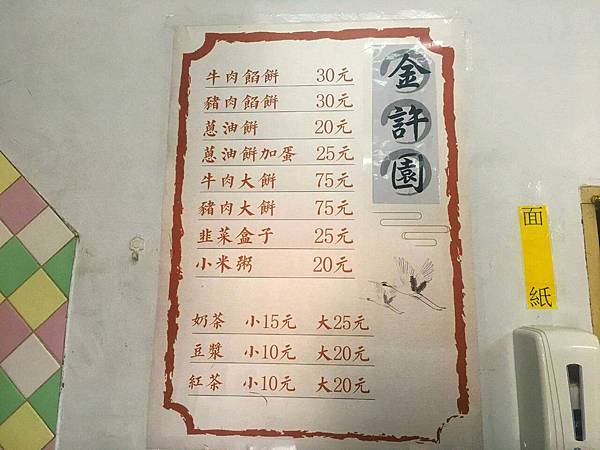 金許園
牛肉餡餅 30元
豬肉餡餅 30元
蔥油餅 20元
蔥油餅加蛋 25元
牛肉大餅 75元
豬肉大餅 75元
韭菜盒子 25元
小米粥 20元
奶茶 小15元 大25元
豆漿 小10元 大20元
紅茶 小10元 大20元
面紙